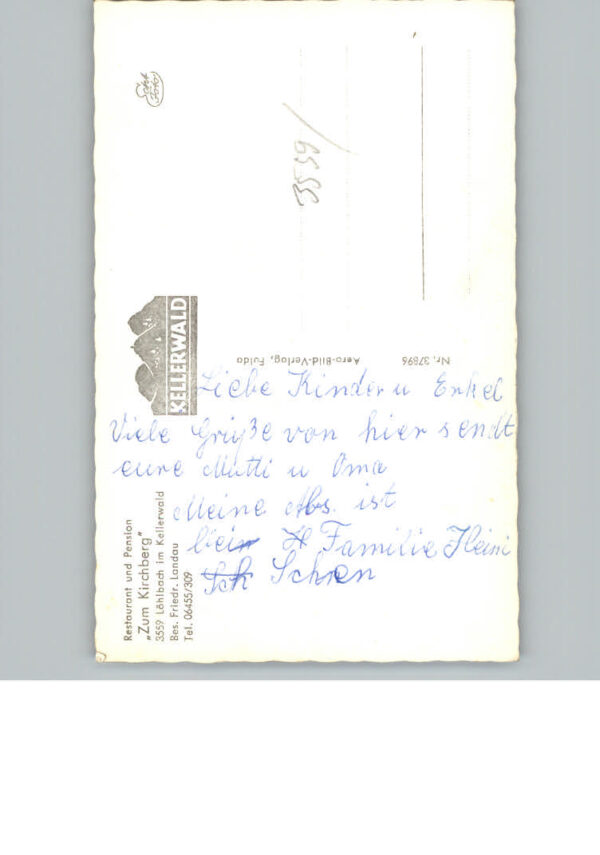 Schö
Foto
3559/
KELLERWALD
Nr. 37896
Aero-Bild-Verlag, Fulda
Liebe Kinder u Enkel
Viele Grüße von hier sendt
eure Mutti u Oma
Meine Abs. ist
bein Familie Heini
Schren
Restaurant und Pension
„Zum Kirchberg"
3559 Löhlbach im Kellerwald
Bes. Friedr. Landau
Tel. 06455/309